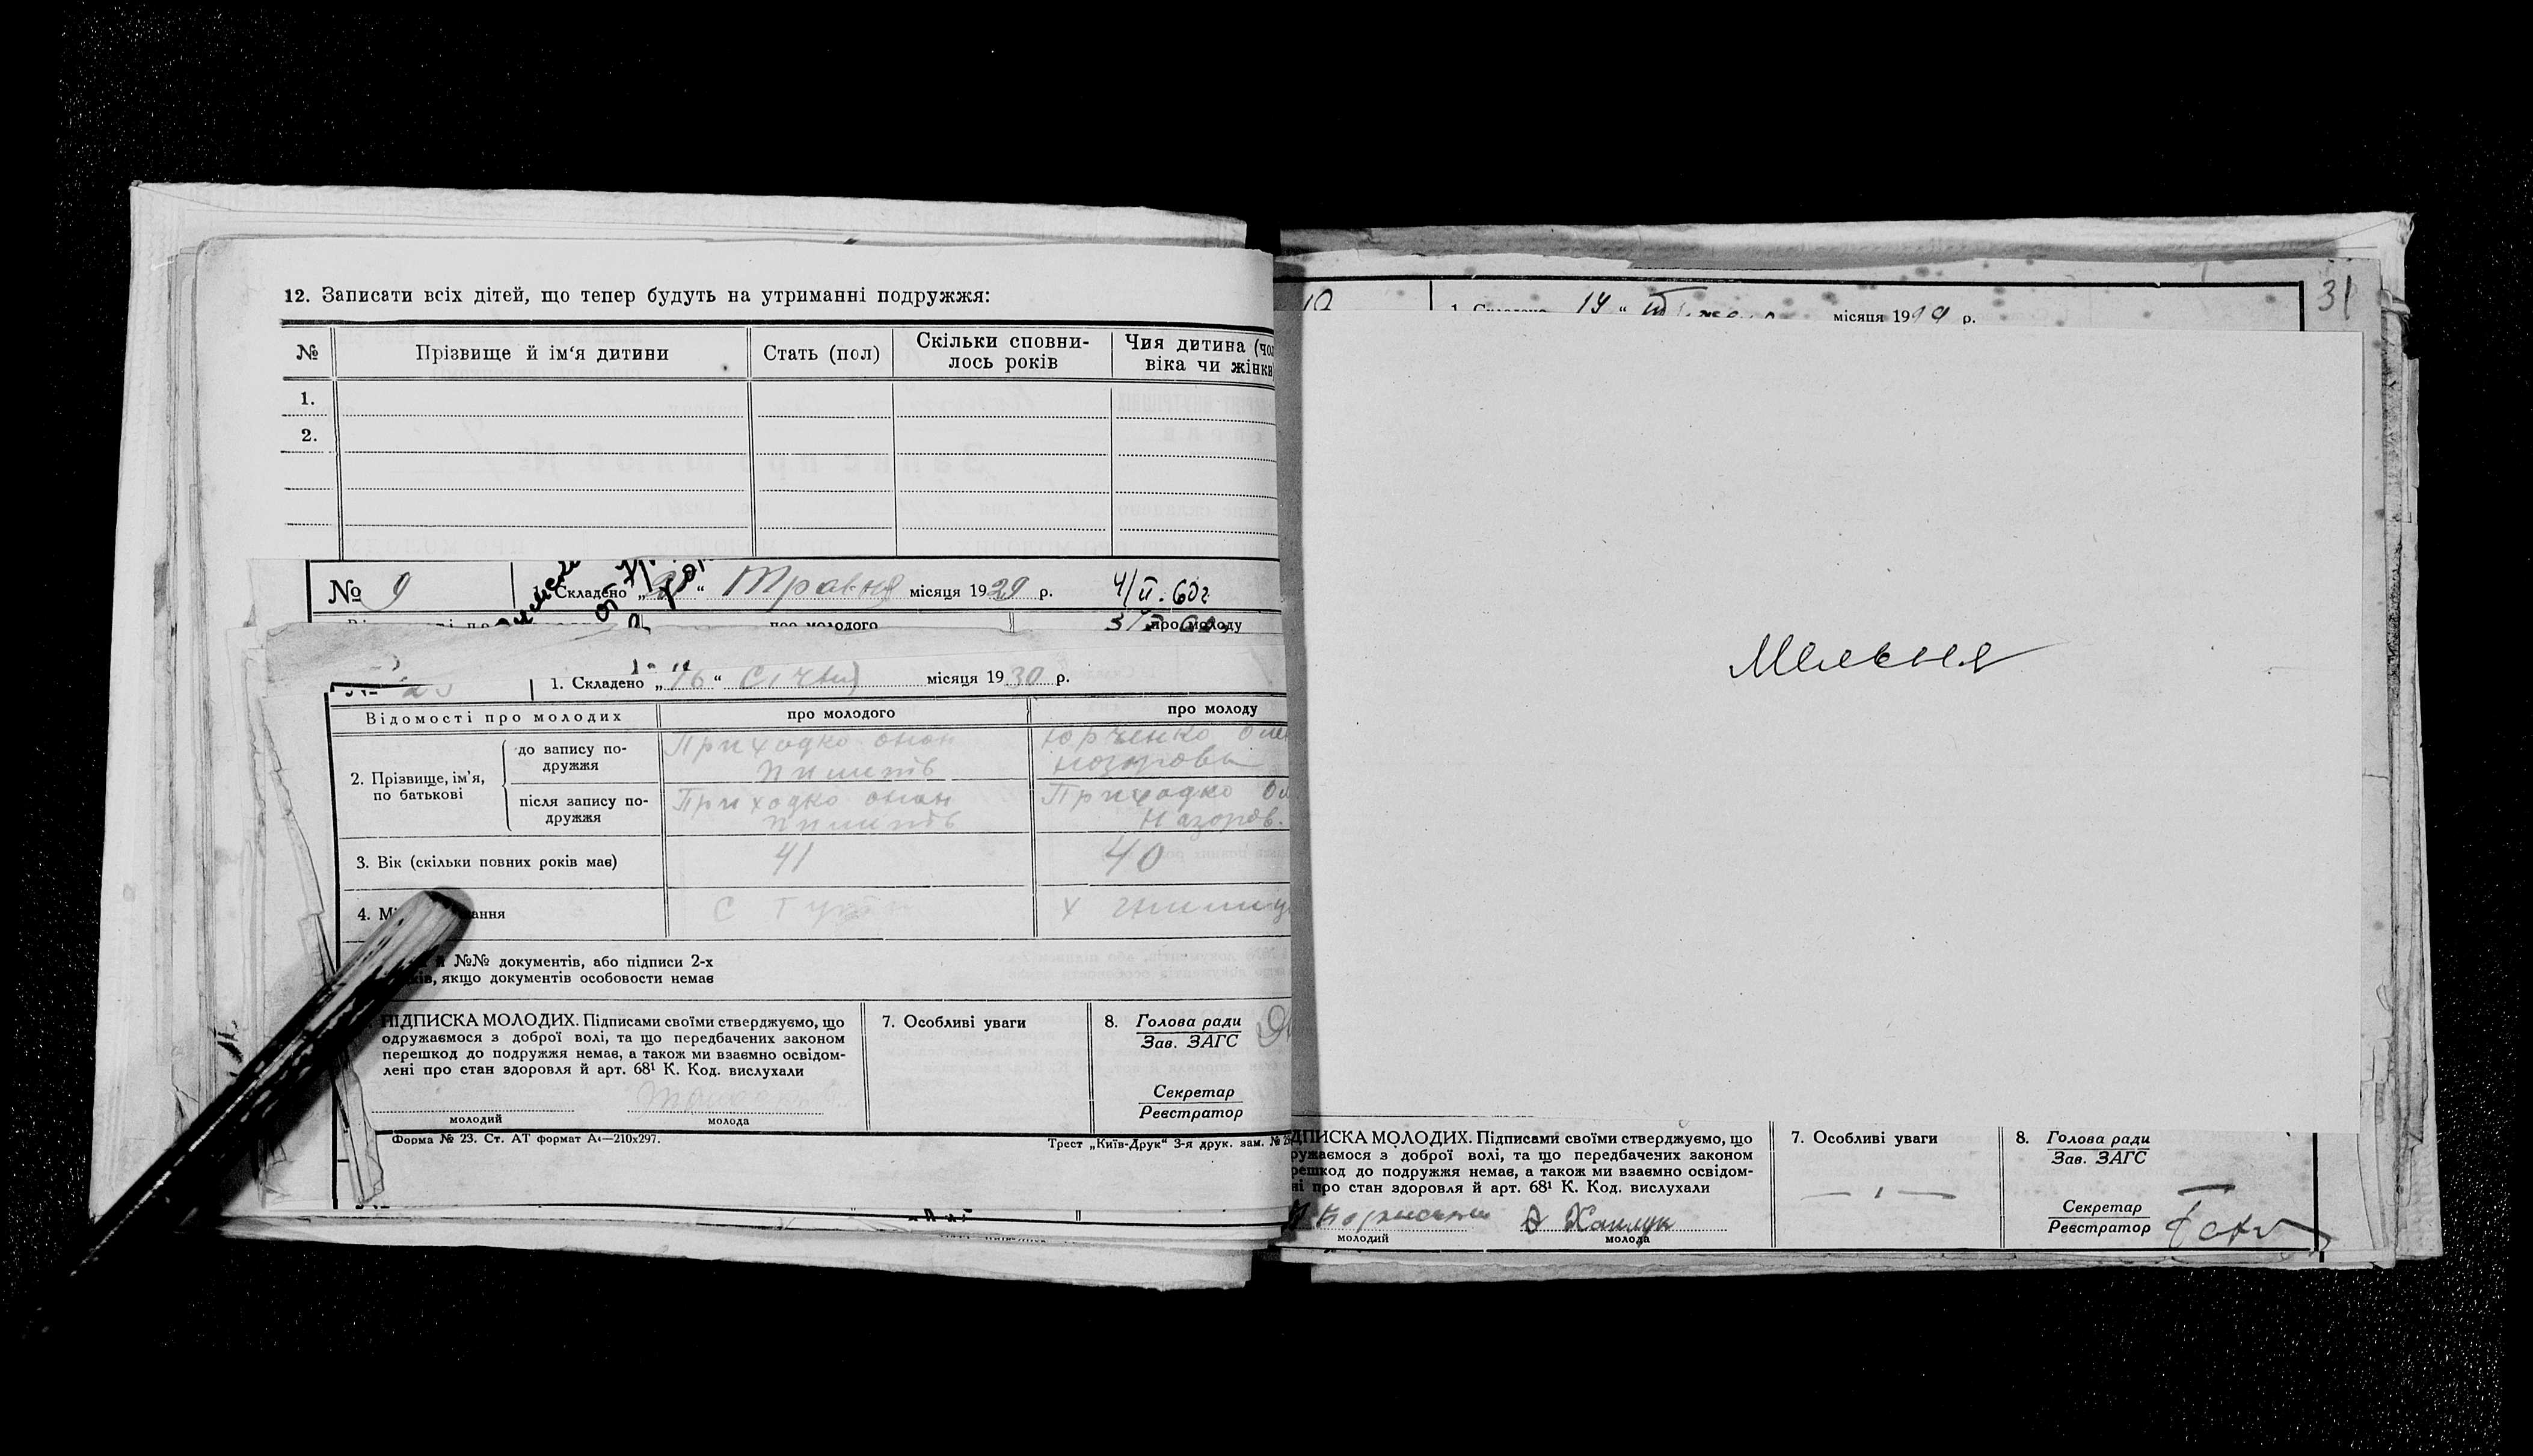 12. Записати всіх дітей, що тепер будуть на утриманні подружжя:
№ Прізвище й ім‘я дитини Стать (пол) Скільки сповни- Чия дитина (чо
лось років віка чи жінки
1.
2.
№ 9 Складено „ “ Травня місяця 1929 р. 4/II. 60г
про молодого про молоду
1. Складено „16“ Січня місяця 1930 р.
Відомості про молодих про молодого про молоду
2. Прізвище, ім’я, по батькові
до запису по- Приходко Юрченко
дружжя
після запису по- Приходко Приходко
дружжя Назаров.
3. Вік (скільки повних років має) 41 40
4. с х
№№ документів, або підписи 2-х
якщо документів особовости немає
ПІДПИСКА МОЛОДИХ. Підписами своїми стверджуємо, що
одружаємося з доброї волі, та що передбачених законом
перешкод до подружжя немає, а також ми взаємно освідом-
лені про стан здоровля й арт. 68¹ К. Код. вислухали
молодий молода
7. Особливі уваги
8. Голова ради
Зав. ЗАГС
Секретар
Реєстратор
Форма № 23. Ст. АТ формат А₄—210х297. Трест „Київ-Друк“ 3-я друк. зам. №
31
10 1. Складено 14 “ місяця 1929 р.
Мельня
ДПИСКА МОЛОДИХ. Підписами своїми стверджуємо, що
ружаємося з доброї волі, та що передбачених законом
решкод до подружжя немає, а також ми взаємно освідом-
ні про стан здоровля й арт. 68¹ К. Код. вислухали
молодий молода
7. Особливі уваги
8. Голова ради
Зав. ЗАГС
Секретар
Реєстратор